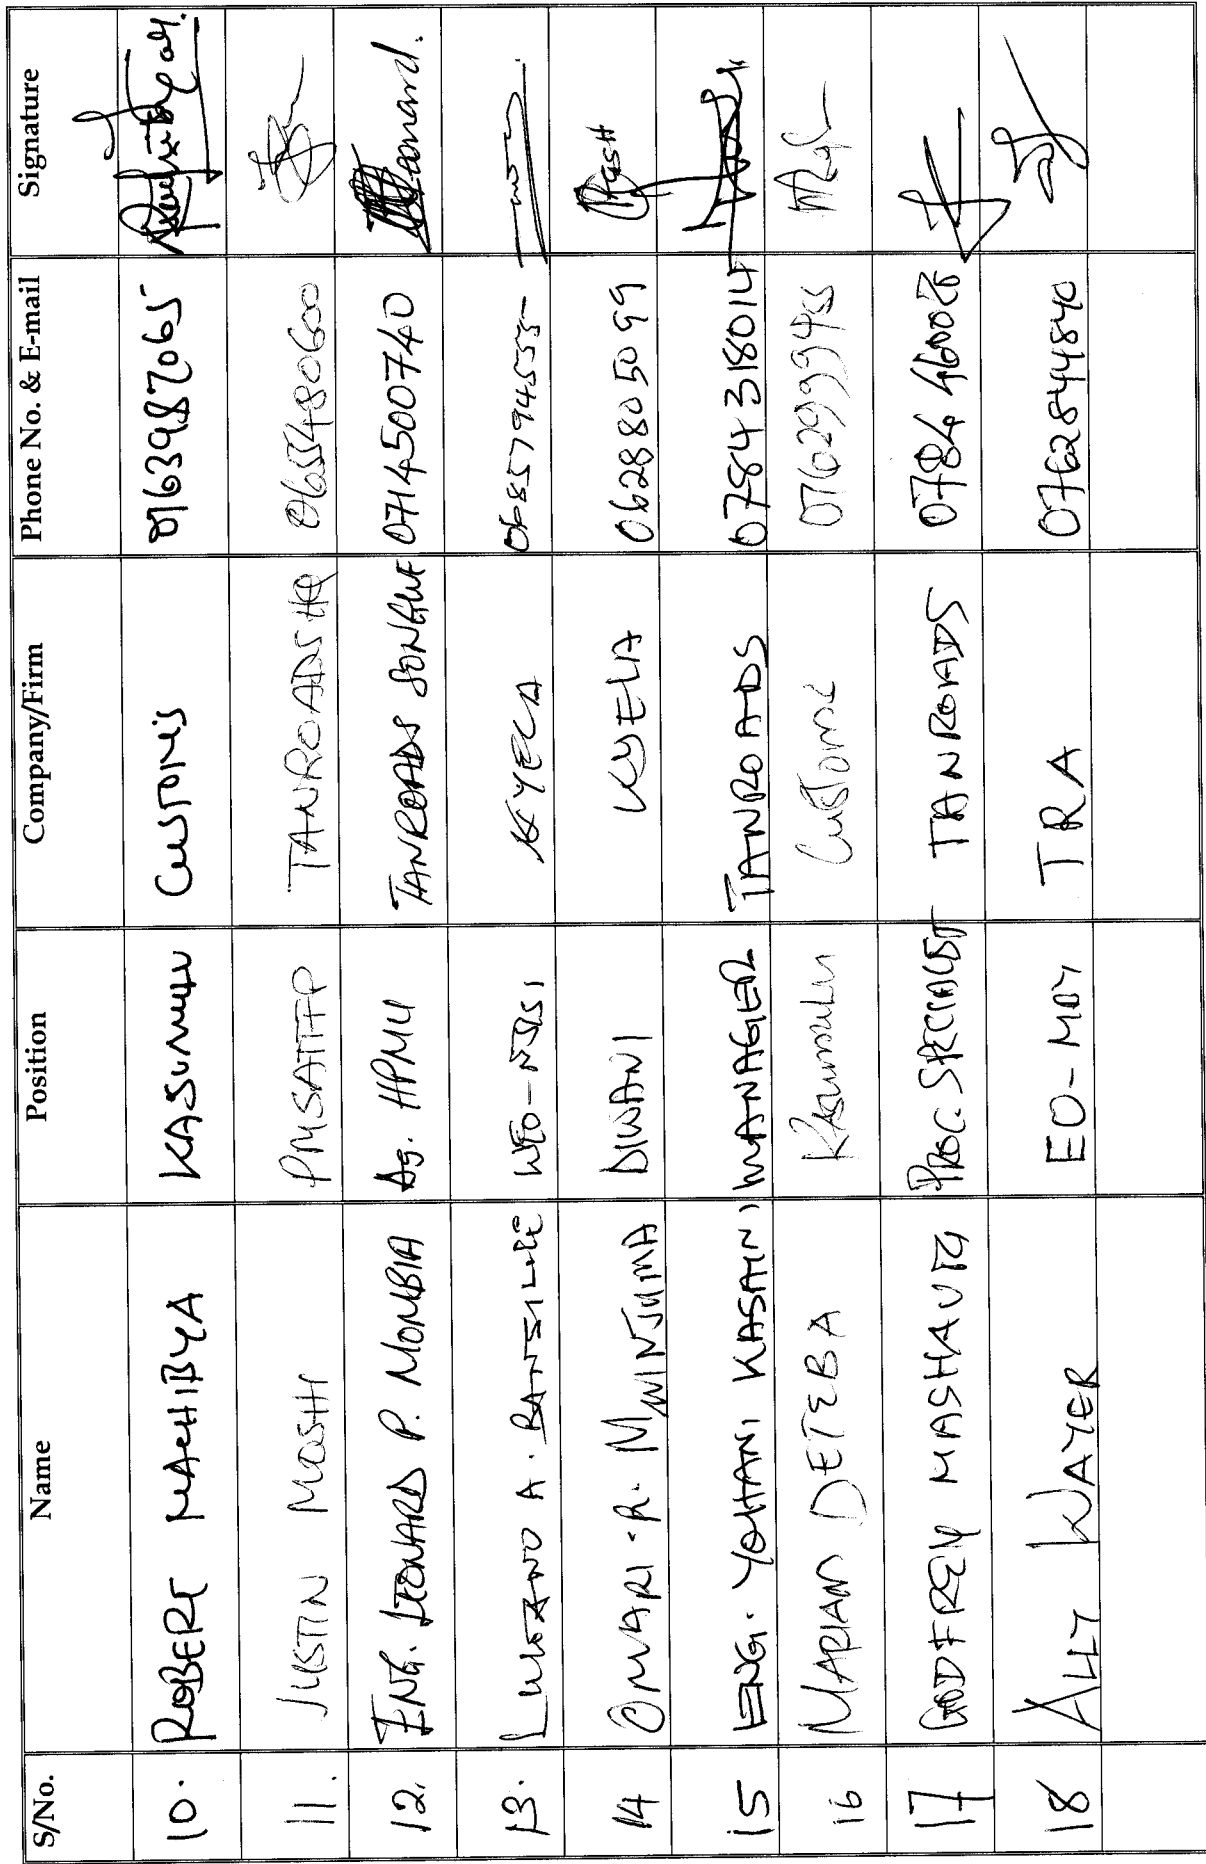 S/No. Name Position Company/Firm Phone No. & E-mail Signature
10. ROBERT MACHIBYA KASUMULU CUSTOMS 0763987065
11. JUSTIN MOSHI PMSATTFP TANROADS HQ 0655480600
12. ENG. LEONARD P. MOMBIA Ag. HPMU TANROADS SONGWE 0714500740
13. A. WEO-NJISI KYELA 0685794555
14 OMARI .R. MWINJUMA DIWANI KYELA 0628805099
15 ENG. YOHANI KASAINI MANAGER TANROADS 0784318014
16 MARIAM DETEBA Kasumulu Customs
17 GODFREY MASHAURI PROC. SPECIALIST TANROADS
18 ALLY WAYER EO-MDY TRA 0762844840